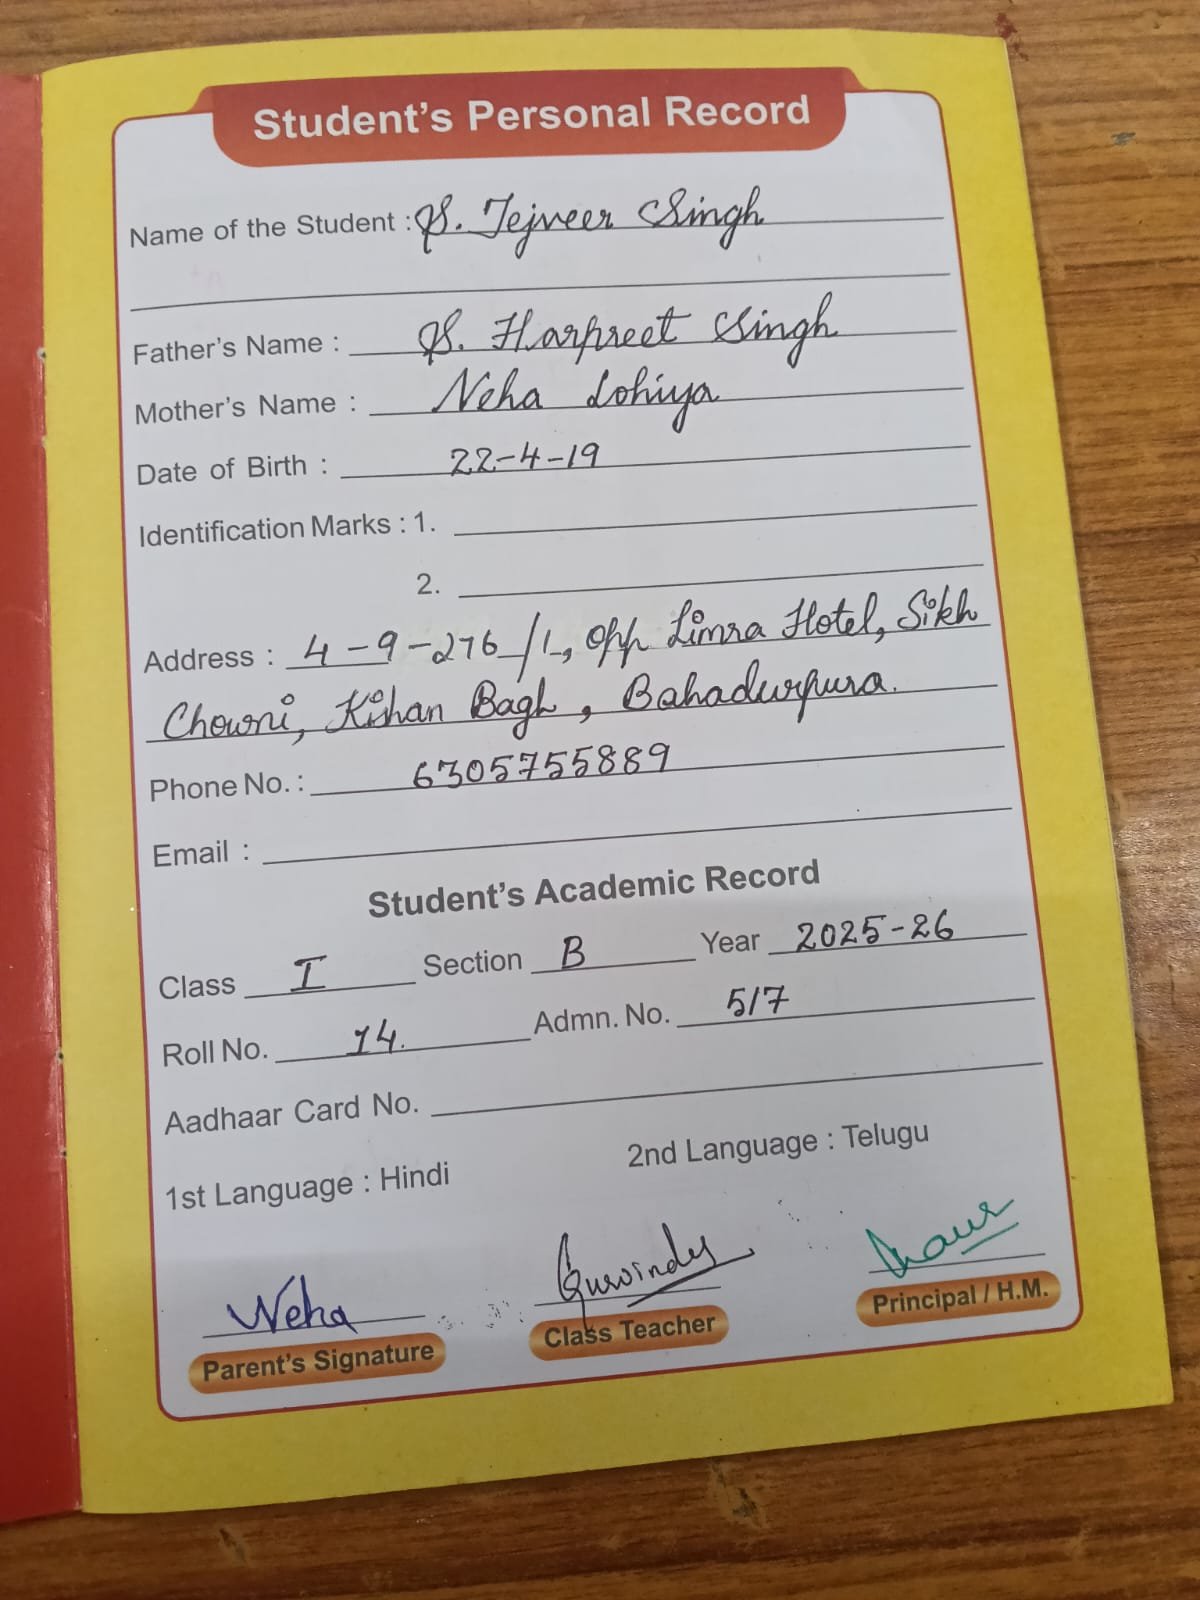 Student's Personal Record
Name of the Student : S. Tejveer Singh
Father's Name : S. Harpreet Singh
Mother's Name : Neha Lohiya
Date of Birth : 22-4-19
Identification Marks : 1.
2.
Address : 4-9-276/1, Opp Limra Hotel, Sikh
Chowni, Kishan Bagh, Bahadurpura.
Phone No. : 6305755889
Email :
Student's Academic Record
Class I Section B Year 2025-26
Roll No. 14. Admn. No. 517
Aadhaar Card No.
1st Language : Hindi 2nd Language : Telugu
Neha Gurvinder
Parent's Signature Class Teacher Principal / H.M.